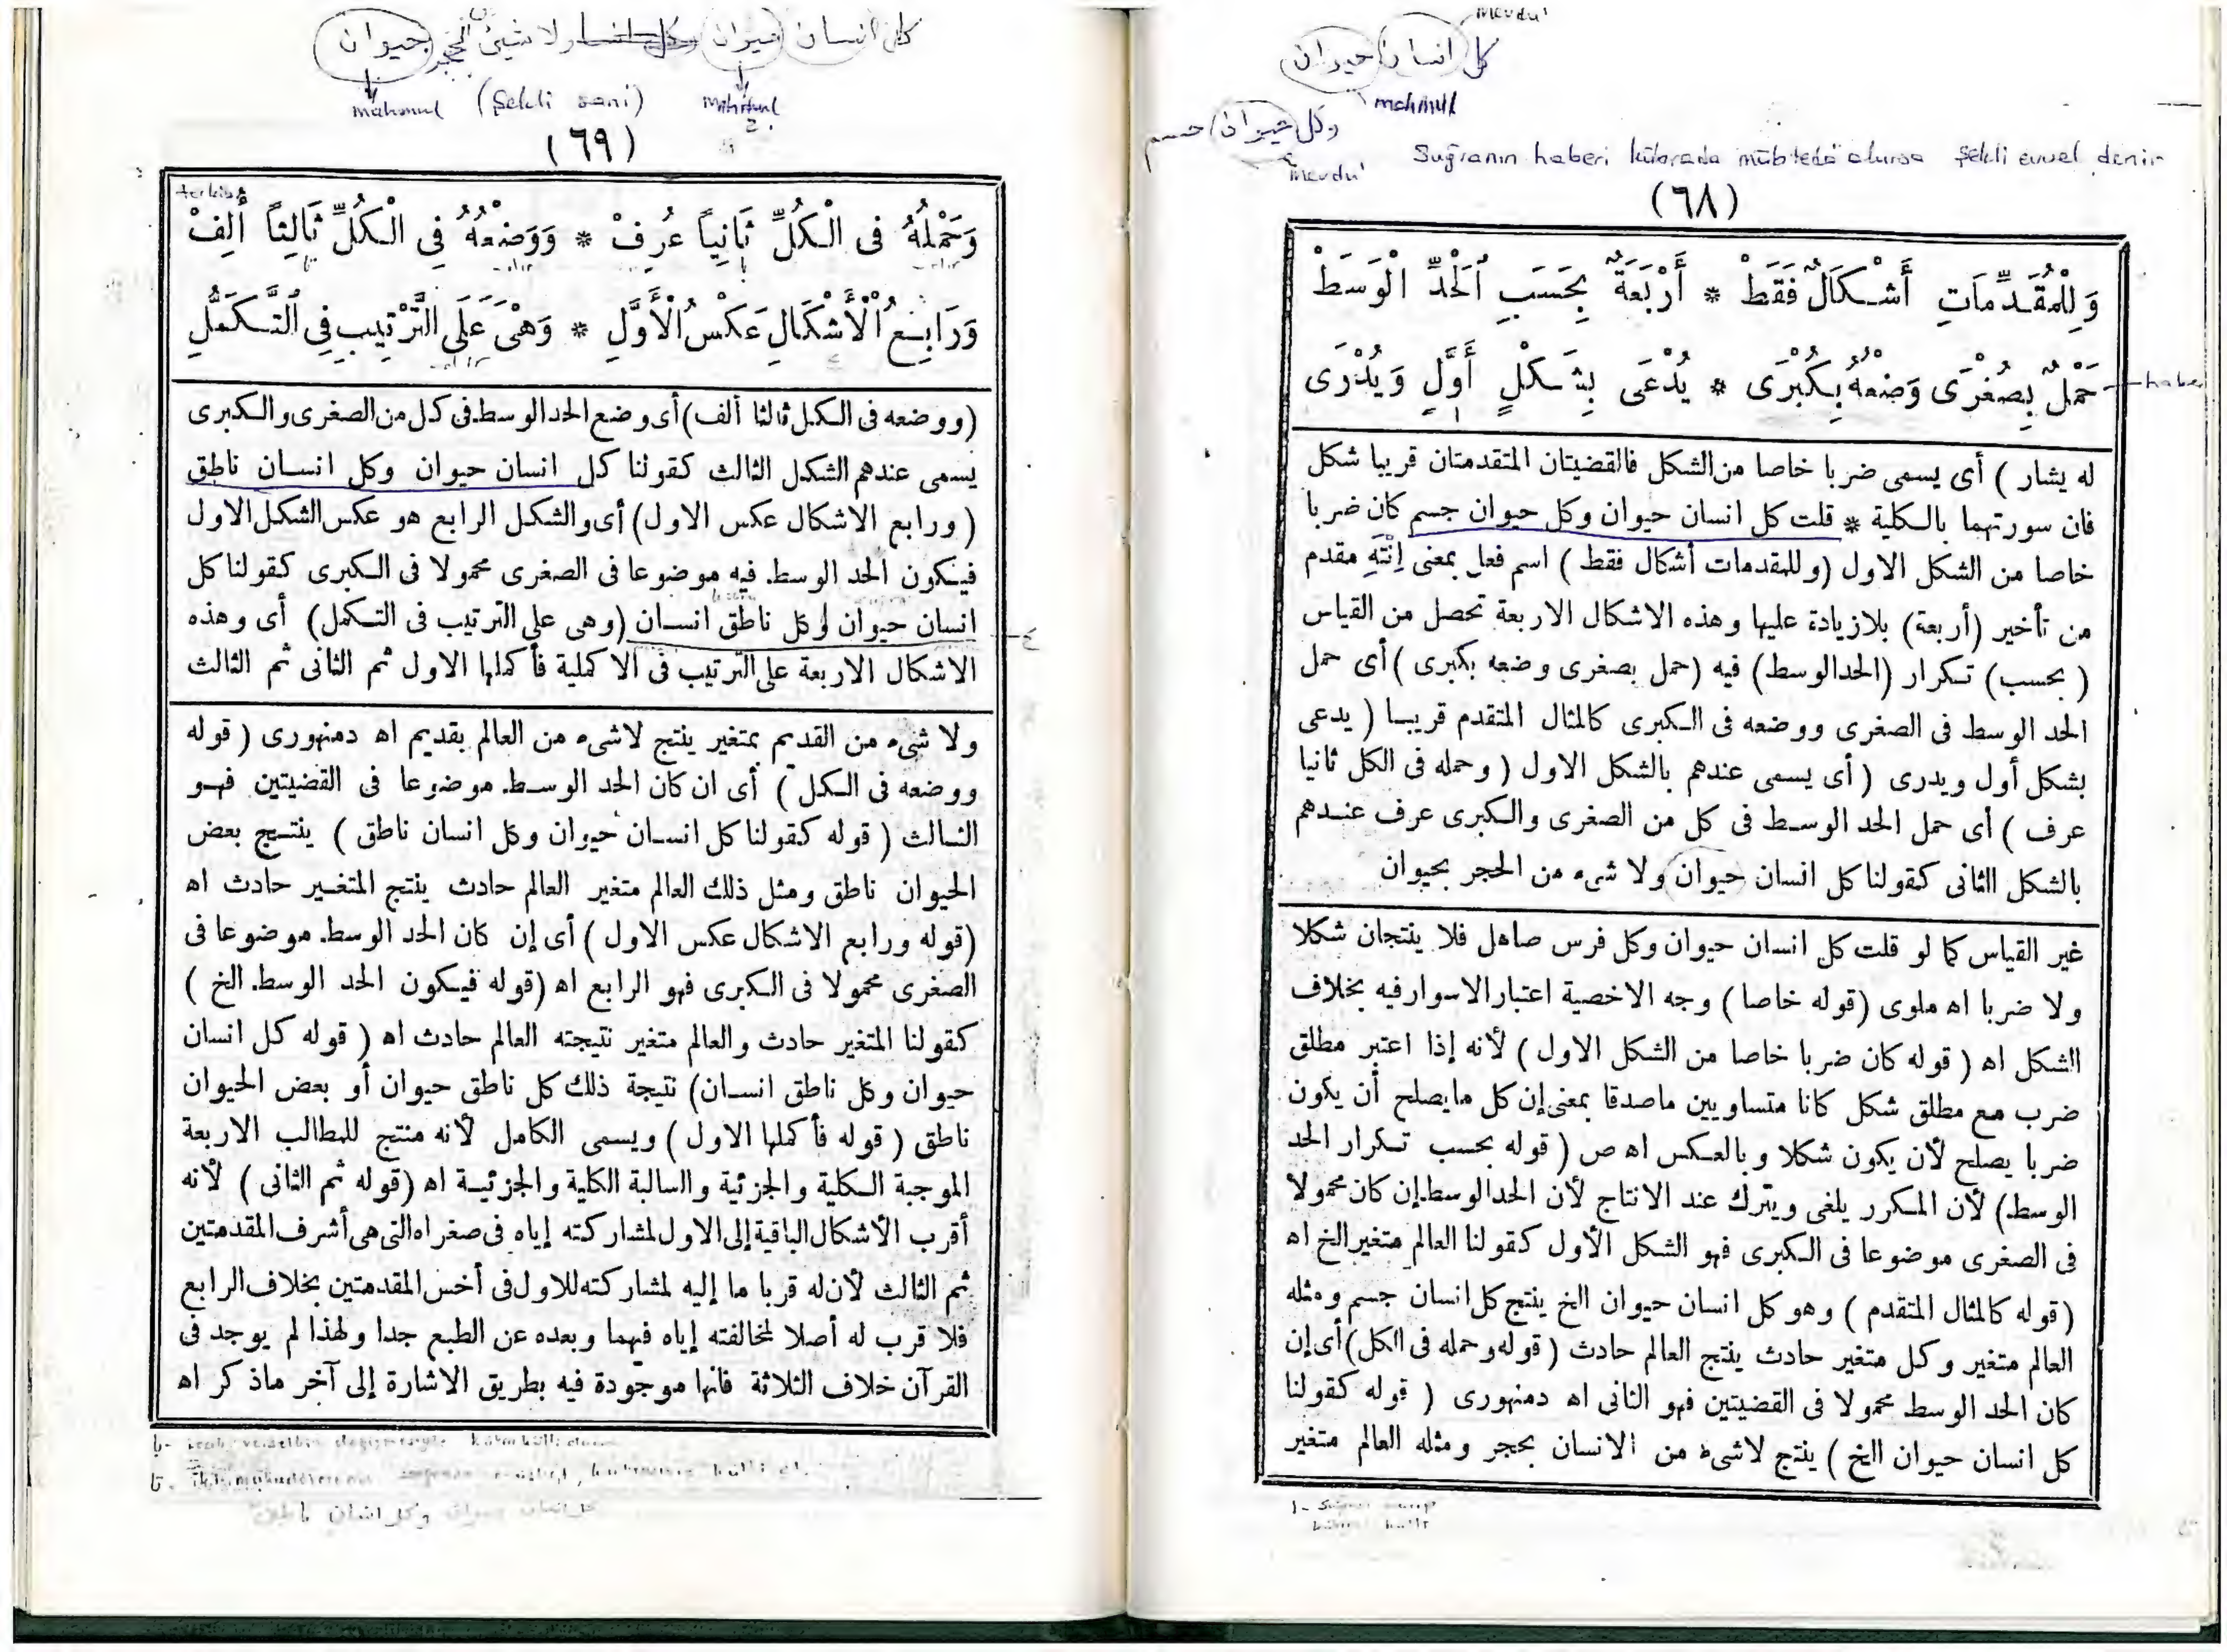 mevdu'
كل انسان حيوان
mahmul
وكل حيوان جسم
mevdu'
Suğranın haberi kübrada mübteda olursa şekli evvel denir
(٦٨)
وَلِلْمُقَدِّمَاتِ أَشْكَالٌ فَقَطْ * أَرْبَعَةٌ بِحَسَبِ ٱلْحَدِّ الْوَسَطْ
حَمْلٌ بِصُغْرَى وَضْعُهُ بِكُبْرَى * يُدْعَى بِشَكْلٍ أَوَّلٍ وَيُدْرَى
haber
له يشار ) أى يسمى ضربا خاصا من الشكل فالقضيتان المتقدمتان قريبا شكل
فان سورتهما بالكلية * قلت كل انسان حيوان وكل حيوان جسم كان ضربا
خاصا من الشكل الاول (وللمقدمات أشكال فقط ) اسم فعل بمعنى اِنْتَهِ مقدم
من تأخير (أربعة) بلا زيادة عليها وهذه الاشكال الاربعة تحصل من القياس
( بحسب) تكرار (الحد الوسط) فيه (حمل بصغرى وضعه بكبرى ) أى حمل
الحد الوسط فى الصغرى ووضعه فى الكبرى كالمثال المتقدم قريبا ( يدعى
بشكل أول ويدرى ( أى يسمى عندهم بالشكل الاول ( وحمله فى الكل ثانيا
عرف ) أى حمل الحد الوسط فى كل من الصغرى والكبرى عرف عندهم
بالشكل الثانى كقولنا كل انسان حيوان ولا شىء من الحجر بحيوان
غير القياس كما لو قلت كل انسان حيوان وكل فرس صاهل فلا ينتجان شكلا
ولا ضربا اه ملوى (قوله خاصا ) وجه الاخصية اعتبار الاسوار فيه بخلاف
الشكل اه ( قوله كان ضربا خاصا من الشكل الاول ) لأنه إذا اعتبر مطلق
ضرب مع مطلق شكل كانا متساويين ماصدقا بمعنى إن كل ما يصلح أن يكون
ضربا يصلح لأن يكون شكلا وبالعكس اه ص ( قوله بحسب تكرار الحد
الوسط) لأن المكرر يلغى ويترك عند الانتاج لأن الحد الوسط إن كان محمولا
فى الصغرى موضوعا فى الكبرى فهو الشكل الأول كقولنا العالم متغير الخ اه
(قوله كالمثال المتقدم ) وهو كل انسان حيوان الخ ينتج كل انسان جسم ومثله
العالم متغير وكل متغير حادث ينتج العالم حادث ( قوله وحمله فى الكل) أى إن
كان الحد الوسط محمولا فى القضيتين فهو الثانى اه دمنهورى ( قوله كقولنا
كل انسان حيوان الخ ) ينتج لا شىء من الانسان بحجر ومثله العالم متغير
كل انسان حيوان ولا شيئ من الحجر حيوان
mahmul (şekli sani) mahmul
(٦٩)
وَحَمْلُهُ فى الْكُلِّ ثَانِياً عُرِفْ * وَوَضْعُهُ فِى الْكُلِّ ثَالِثاً أُلِفْ
وَرَابِعُ ٱلْأَشْكَالِ عَكْسُ ٱلْأَوَّلِ * وَهْىَ عَلَى التَّرْتِيبِ فِى ٱلتَّكَمُّلِ
(ووضعه فى الكل ثالثا ألف) أى وضع الحد الوسط فى كل من الصغرى والكبرى
يسمى عندهم الشكل الثالث كقولنا كل انسان حيوان وكل انسان ناطق
( ورابع الاشكال عكس الاول) أى والشكل الرابع هو عكس الشكل الاول
فيكون الحد الوسط فيه موضوعا فى الصغرى محمولا فى الكبرى كقولنا كل
انسان حيوان وكل ناطق انسان (وهى على الترتيب فى التكمل) أى وهذه
الاشكال الاربعة على الترتيب فى الاكملية فأكملها الاول ثم الثانى ثم الثالث
ولا شىء من القديم بمتغير ينتج لا شىء من العالم بقديم اه دمنهورى ( قوله
ووضعه فى الكل ) أى ان كان الحد الوسط موضوعا فى القضيتين فهو
الثالث ( قوله كقولنا كل انسان حيوان وكل انسان ناطق ) ينتج بعض
الحيوان ناطق ومثل ذلك العالم متغير العالم حادث ينتج المتغير حادث اه
(قوله ورابع الاشكال عكس الاول ) أى إن كان الحد الوسط موضوعا فى
الصغرى محمولا فى الكبرى فهو الرابع اه (قوله فيكون الحد الوسط الخ )
كقولنا المتغير حادث والعالم متغير نتيجته العالم حادث اه ( قوله كل انسان
حيوان وكل ناطق انسان) نتيجة ذلك كل ناطق حيوان أو بعض الحيوان
ناطق ( قوله فأكملها الاول ) ويسمى الكامل لأنه منتج للمطالب الاربعة
الموجبة الكلية والجزئية والسالبة الكلية والجزئية اه (قوله ثم الثانى ) لأنه
أقرب الأشكال الباقية إلى الاول لمشاركته إياه فى صغراه التى هى أشرف المقدمتين
ثم الثالث لأن له قربا ما إليه لمشاركته للاول فى أخس المقدمتين بخلاف الرابع
فلا قرب له أصلا لمخالفته إياه فيهما وبعده عن الطبع جدا ولهذا لم يوجد فى
القرآن خلاف الثلاثة فانها موجودة فيه بطريق الاشارة إلى آخر ما ذكر اه
كل انسان حيوان وكل انسان ناطق